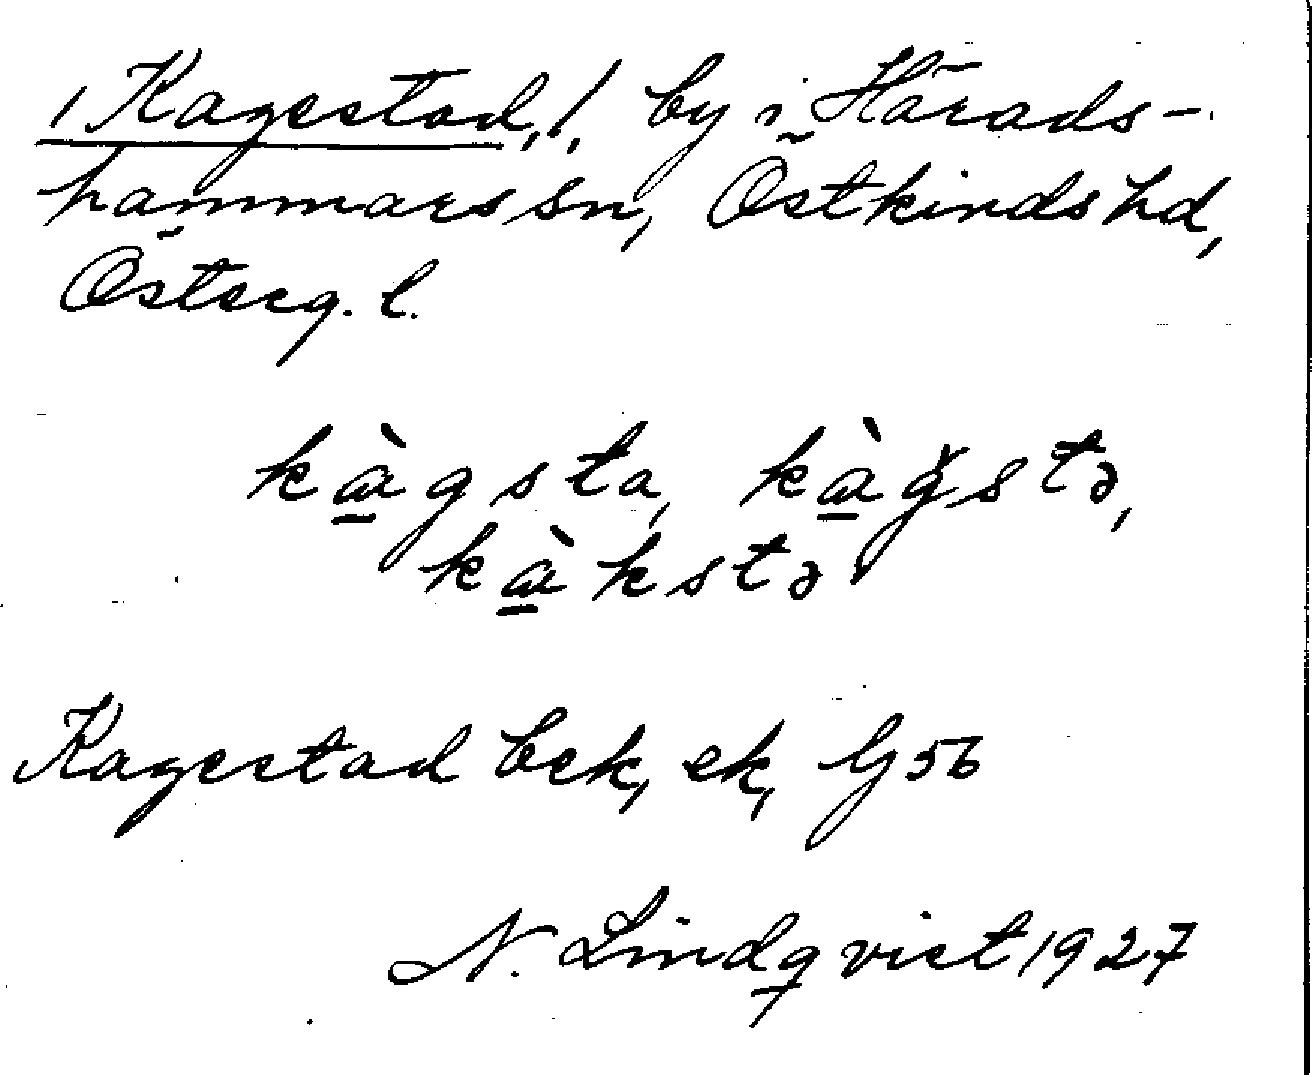 /Kagestad,/, by i Härads-
hammars sn, Östkinds hd,
Österg. l.
kàgsta, kàgstə,
kàkstə
Kagestad bek, ek, Gj 56
N. Lindqvist 1927